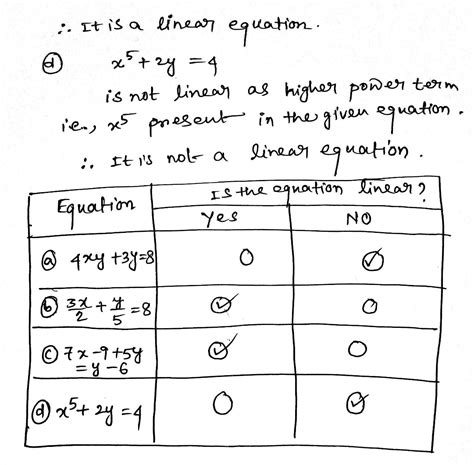 ∴ It is a linear equation.
ⓓ x⁵ + 2y = 4
is not linear as higher power term
i.e., x⁵ present in the given equation.
∴ It is not a linear equation.
Equation Is the equation linear?
Yes NO
ⓐ 4xy + 3y = 8
ⓑ 3x/2 + y/5 = 8
ⓒ 7x - 9 + 5y
= y - 6
ⓓ x⁵ + 2y = 4